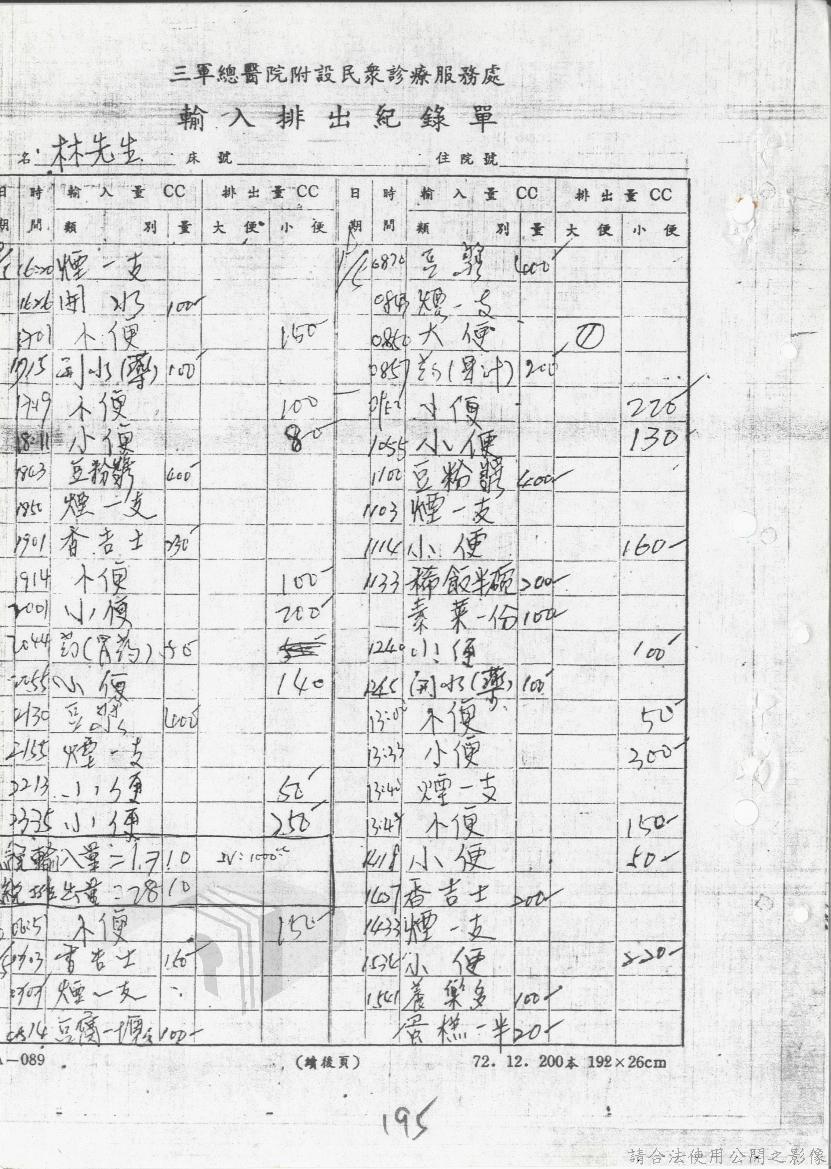 三軍總醫院附設民眾診療服務處
輸入排出紀錄單
名：林先生 床號 住院號
日期 時間 輸入量CC 類別 量 排出量CC 大便 小便
1620 煙一支
1626 開水 100
1701 小便 150
1715 開水(藥) 100
1719 小便 100
1811 小便 80
1843 豆粉漿 400
1850 煙一支
1901 香吉士 230
1914 小便 100
2001 小便 200
2044 药(胃药) 50
2055 小便 140
2130 豆漿 400
2155 煙一支
2213 小便 50
2335 小便 250
總輸入量=1,710 IV:1000cc
總排出量=2810
小便 150
香吉士 150
煙一支
0814 豆腐一塊 100
日期 時間 輸入量CC 類別 量 排出量CC 大便 小便
豆漿 400
0843 煙一支
0850 大便 ①
0857 药(果汁) 200
小便 220
1055 小便 130
1100 豆粉漿 400
1103 煙一支
1114 小便 160
1133 稀飯半碗 200
素菜一份 100
1240 小便 100
1245 開水(藥) 100
小便 50
13:33 小便 300
13:40 煙一支
小便 150
1418 小便 50
香吉士 200
1433 煙一支
小便 220
1541 養樂多 100
蛋糕一半 20
A-089 (續後頁) 72.12.200本 192×26cm
195
請合法使用公開之影像